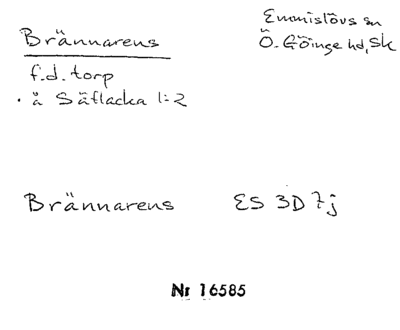 Brännarens
Emmislövs sn
Ö. Göinge hd, Sk
f.d. torp
å Säflacka 1:2
Brännarens ES 3D 7j
Nr 16585